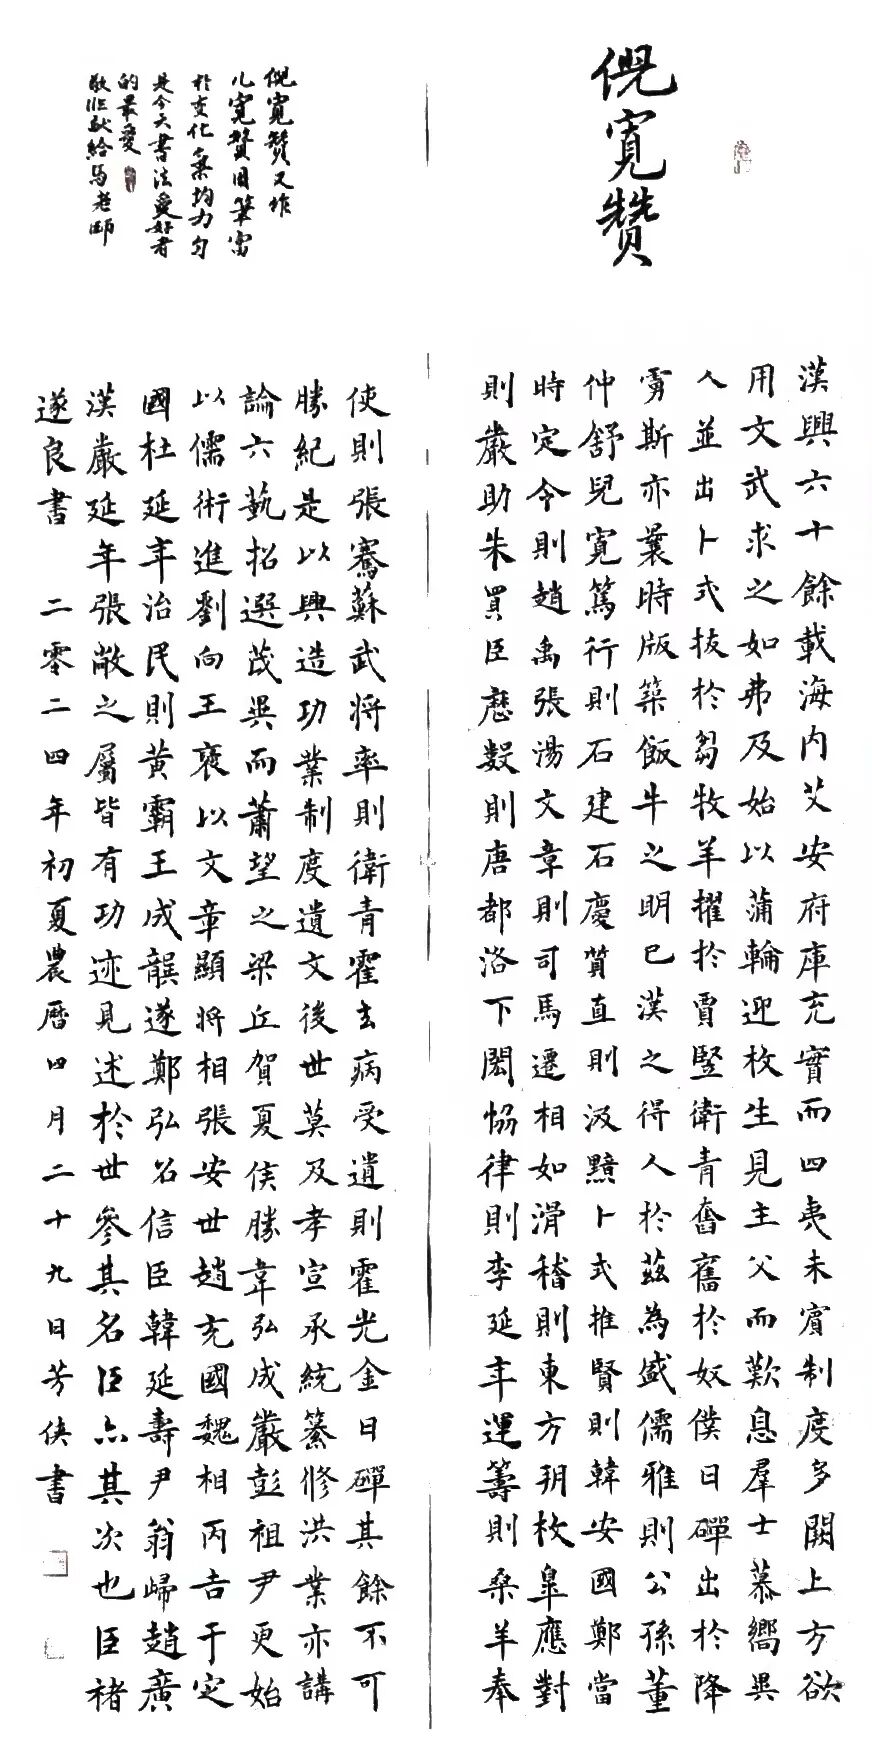 倪寬贊
漢興六十餘載海内艾安府庫充實而四夷未賓制度多闕上方欲
用文武求之如弗及始以蒲輪迎枚生見主父而歎息羣士慕嚮異
人並出卜式拔於芻牧羊擢於賈豎衛青奮舊於奴僕日磾出於降
虜斯亦曩時版築飯牛之明已漢之得人於茲為盛儒雅則公孫董
仲舒兒寬篤行則石建石慶質直則汲黯卜式推賢則韓安國鄭當
時定令則趙禹張湯文章則司馬遷相如滑稽則東方朔枚皋應對
則嚴助朱買臣歷數則唐都洛下閎協律則李延年運籌則桑羊奉
使則張騫蘇武將率則衛青霍去病受遺則霍光金日磾其餘不可
勝紀是以興造功業制度遺文後世莫及孝宣承統纂修洪業亦講
論六藝招選茂異而蕭望之梁丘賀夏侯勝韋弘成嚴彭祖尹更始
以儒術進劉向王褒以文章顯將相張安世趙充國魏相丙吉于定
國杜延年治民則黃霸王成龔遂鄭弘召信臣韓延壽尹翁歸趙廣
漢嚴延年張敞之屬皆有功迹見述於世參其名臣亦其次也臣褚
遂良書 二零二四年初夏農曆四月二十九日芳侠書
倪寬贊又作
儿寬贊用筆富
於变化 均力匀
是今天書法爱好者
的最爱
敬临献給马老師